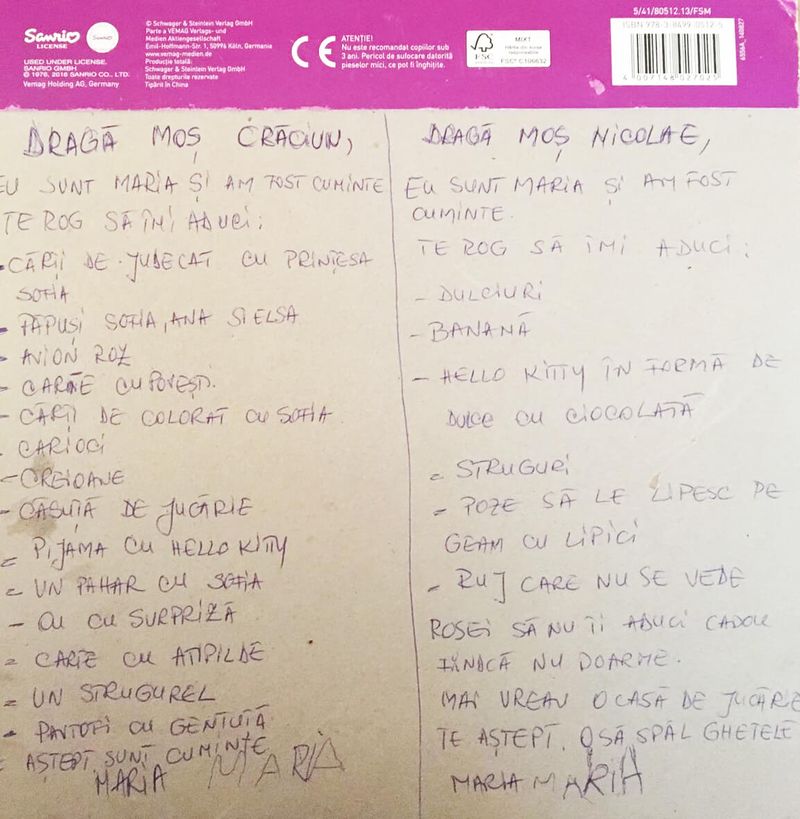 Sanrio
LICENSE
Sanrio
USED UNDER LICENSE.
SANRIO GMBH
© 1976, 2016 SANRIO CO., LTD.
Vemag Holding AG, Germany
© Schwager & Steinlein Verlag GmbH
Parte a VEMAG Verlags- und
Medien Aktiengesellschaft
Emil-Hoffmann-Str. 1, 50996 Köln, Germania
www.vemag-medien.de
Producție totală:
Schwager & Steinlein Verlag GmbH
Toate drepturile rezervate
Tipărit în China
CE
ATENȚIE!
Nu este recomandat copiilor sub
3 ani. Pericol de sufocare datorită
pieselor mici, ce pot fi înghițite.
FSC
www.fsc.org
MIXT
Hârtie din surse
responsabile
FSC® C106632
5/41/80512.13/FSM
ISBN 978-3-8499-0512-5
4 007148 027025
DRAGĂ MOȘ CRĂCIUN,
EU SUNT MARIA ȘI AM FOST CUMINTE
TE ROG SĂ ÎMI ADUCI:
- CĂRȚI DE JUDECAT CU PRINȚESA
SOFIA
- PĂPUȘI SOFIA, ANA SI ELSA
- AVION ROZ
- CARTE CU POVEȘTI.
- CĂRȚI DE COLORAT CU SOFIA
- CARIOCI
- CREIOANE
- CĂSUȚĂ DE JUCĂRIE
- PIJAMA CU HELLO KITTY
- UN PAHAR CU SOFIA
- OU CU SURPRIZĂ
- CARTE CU ATIPILDE
- UN STRUGUREL
- PANTOFI CU GENTUȚĂ
AȘTEPT SUNT CUMINTE
MARIA MARIA
DRAGĂ MOȘ NICOLAE,
EU SUNT MARIA ȘI AM FOST
CUMINTE.
TE ROG SĂ ÎMI ADUCI:
- DULCIURI
- BANANĂ
- HELLO KITTY ÎN FORMĂ DE
DULCE CU CIOCOLATĂ
- STRUGURI
- POZE SĂ LE LIPESC PE
GEAM CU LIPICI
- RUJ CARE NU SE VEDE
ROSEI SĂ NU ÎI ADUCI CADOU
FIINDCĂ NU DOARME.
MAI VREAU O CASĂ DE JUCĂRIE
TE AȘTEPT. O SĂ SPĂL GHETELE
MARIA MARIA